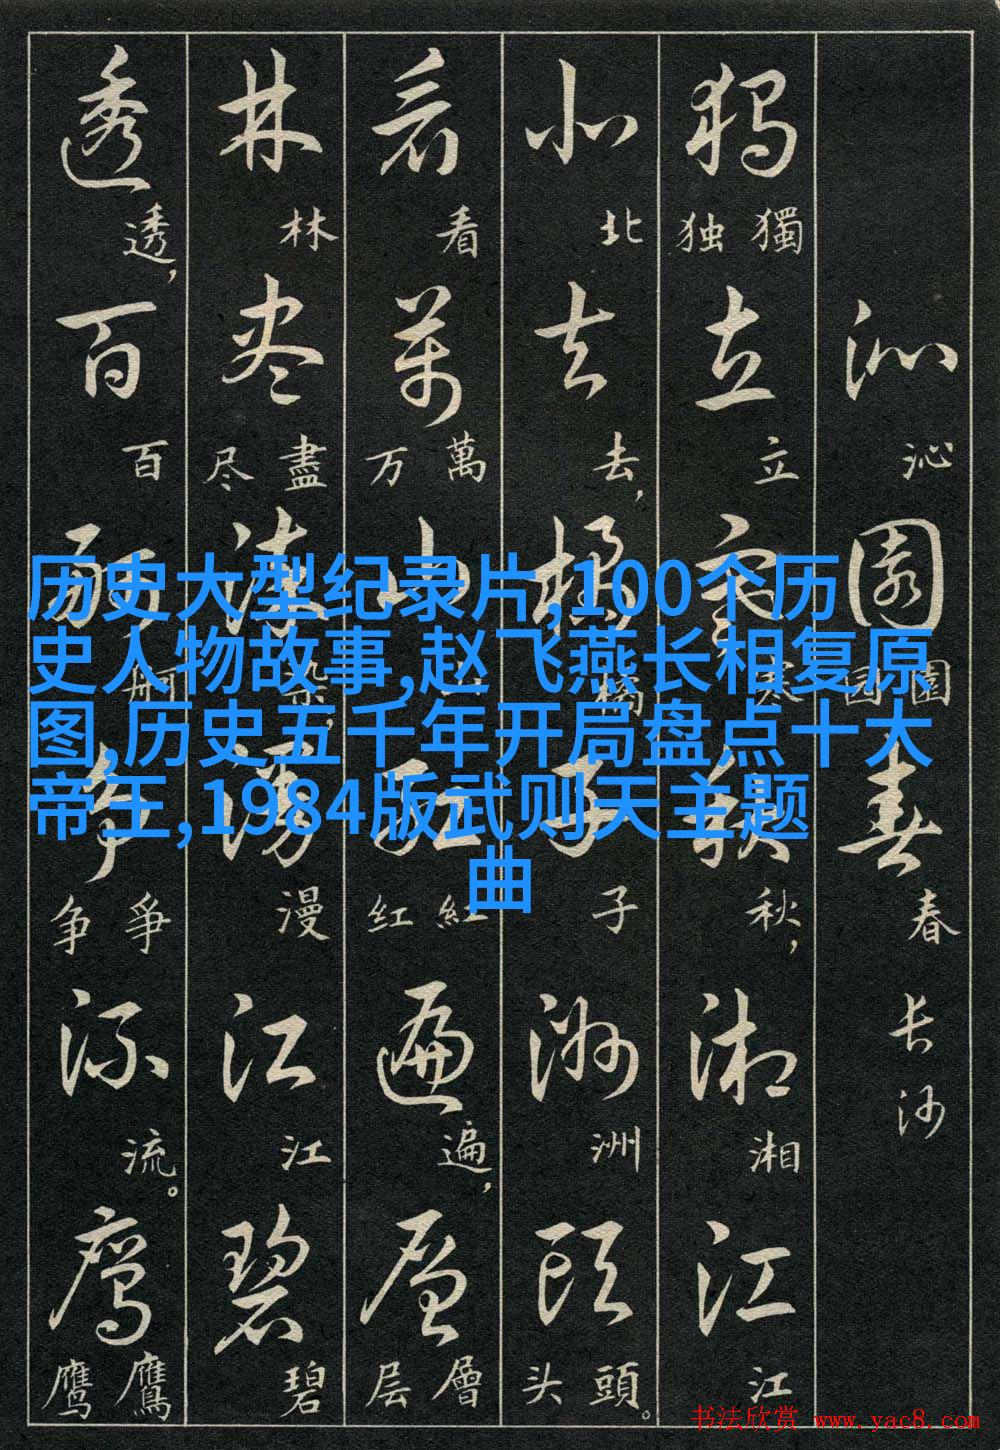 沁園春
沁 园 園 春
长沙
獨立寒秋 湘江
独 獨 立 寒 秋, 湘 江
北去 橘子洲頭
北 去, 橘 子 洲 头 頭。
看萬山红遍 層
看 万 萬 山 红 紅 遍, 层 層
林尽漫江碧
林 尽 盡 染, 漫 江 碧
透百舸争流鹰
透, 百 舸 争 爭 流。 鹰 鷹
历史大型纪录片,100个历
史人物故事,赵飞燕长相复原
图,历史五千年开局盘点十大
帝王,1984版武则天主题
曲
书法欣赏 www.yac8.com